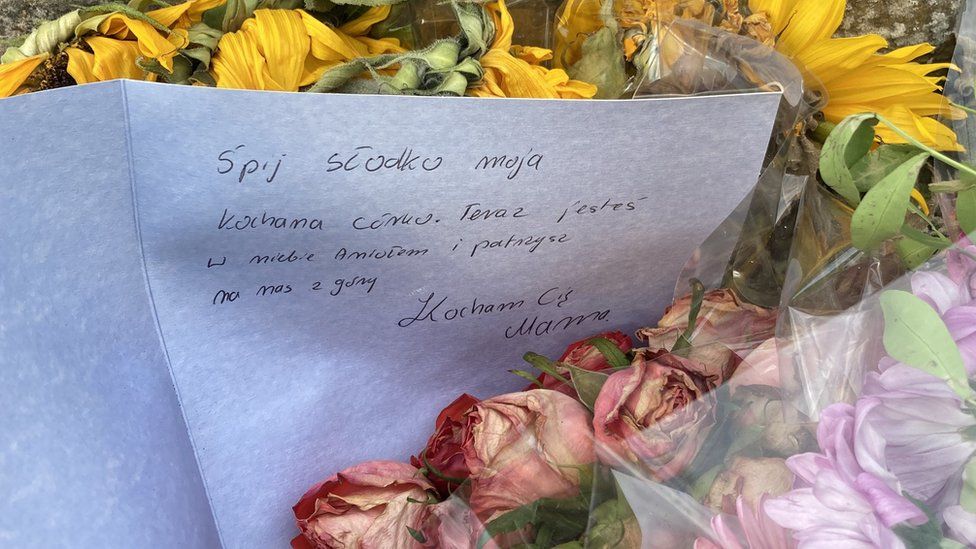 Śpij słodko moja
Kochana córko. Teraz jesteś
w niebie Aniołem i patrzysz
na nas z góry
Kocham Cię
Mamma.